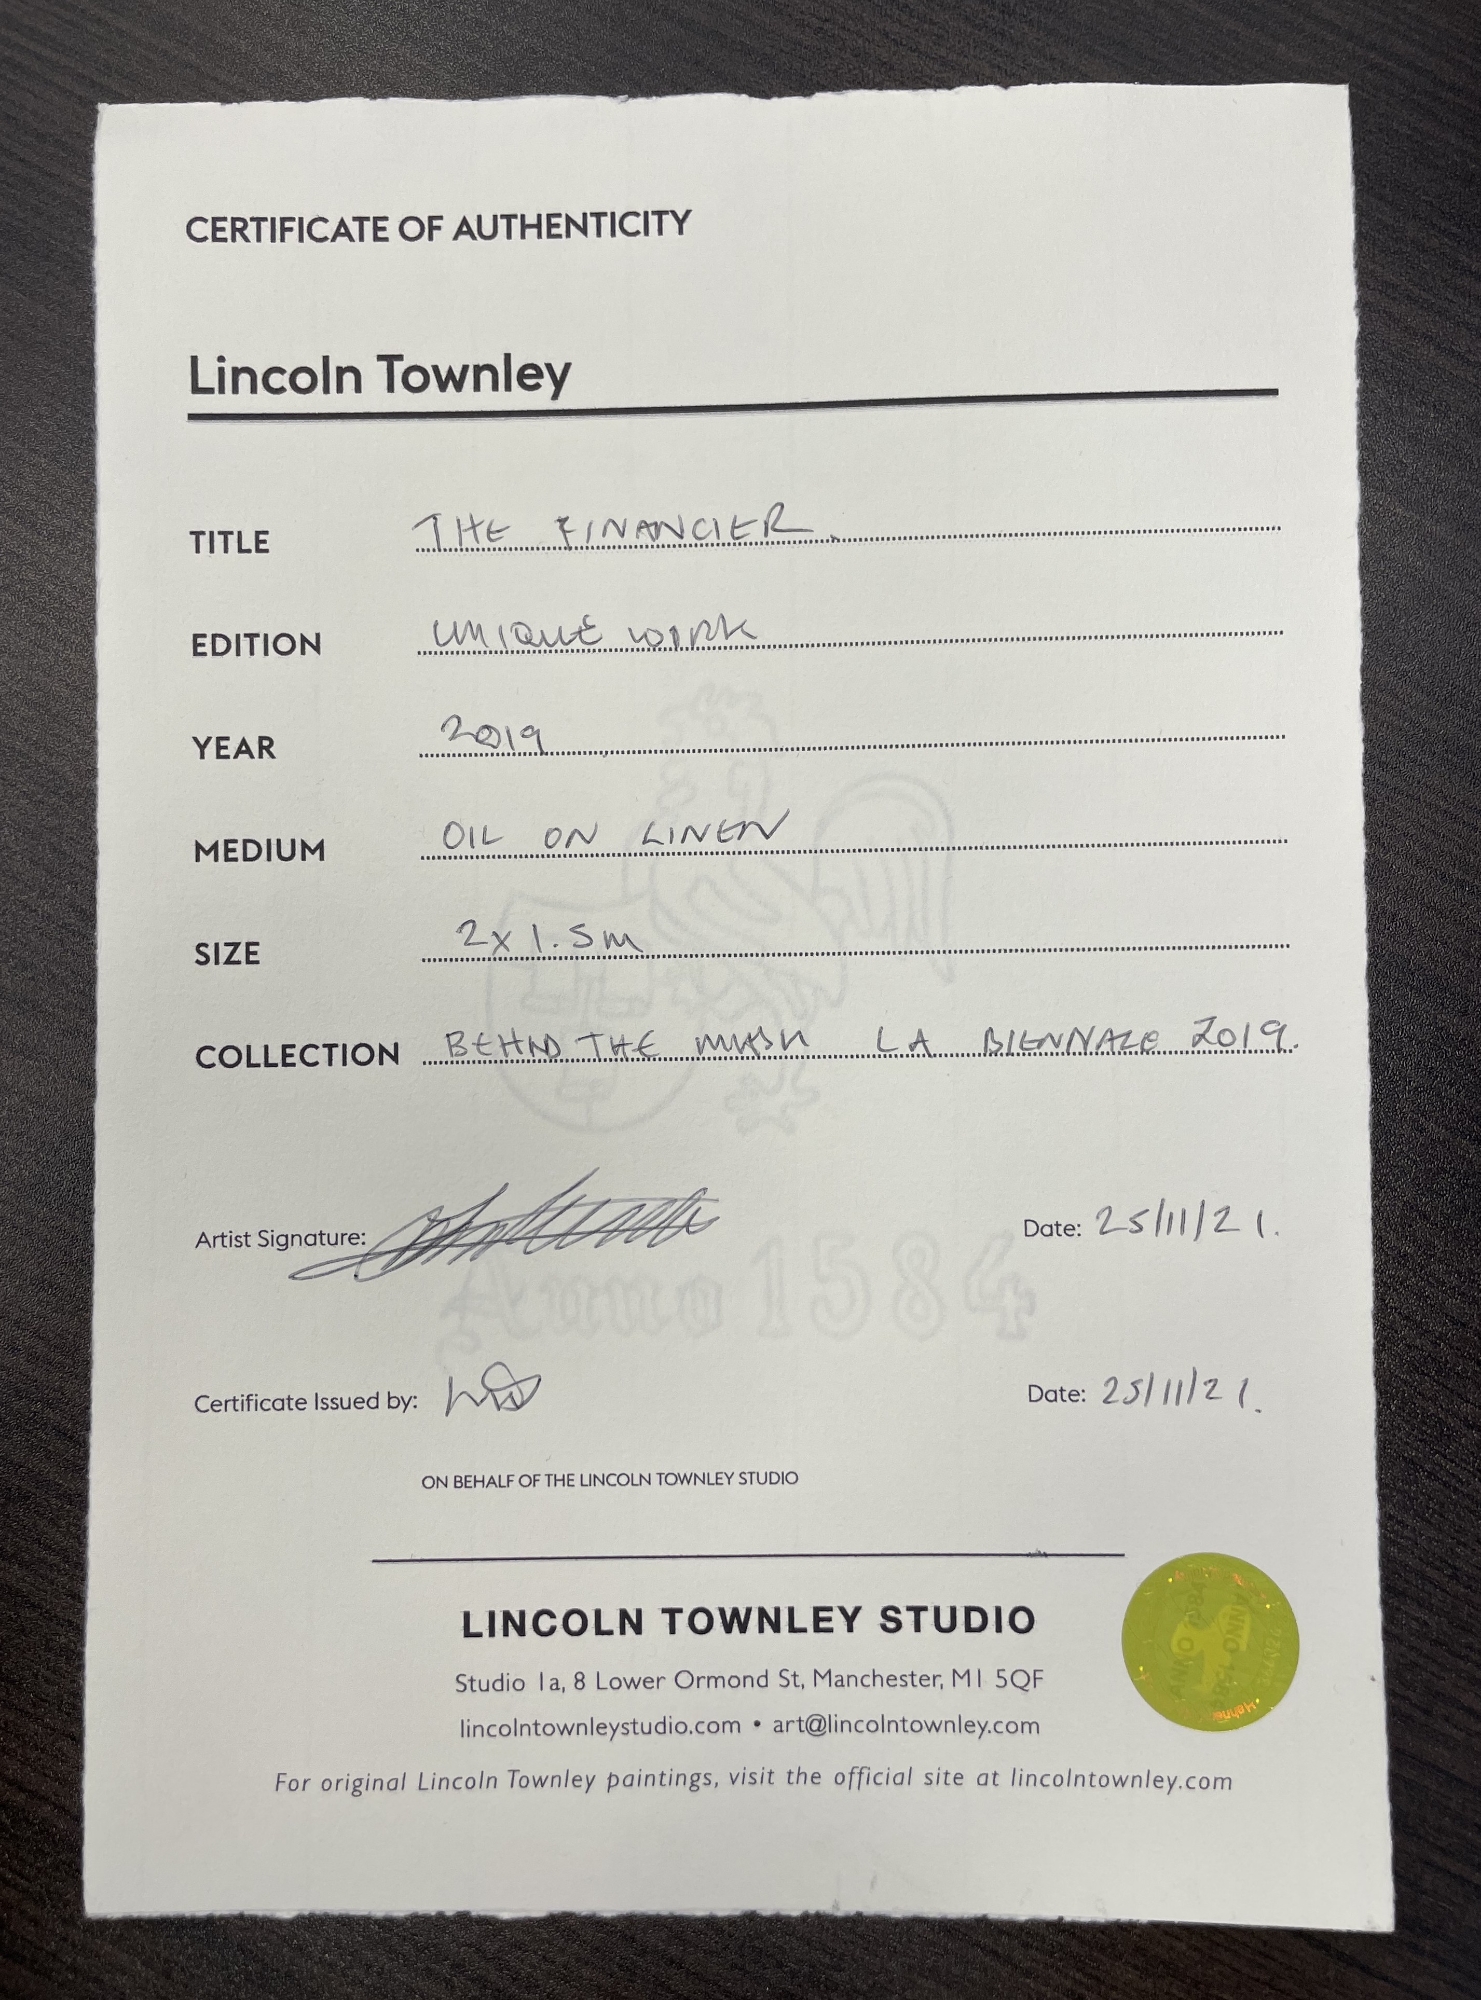 CERTIFICATE OF AUTHENTICITY
Lincoln Townley
TITLE THE FINANCIER.
EDITION UNIQUE WORK
YEAR 2019
MEDIUM OIL ON LINEN
SIZE 2x1.5m
COLLECTION BEHIND THE MASK LA BIENNALE 2019.
Artist Signature: Date: 25/11/21.
Anno 1584
Certificate Issued by: Date: 25/11/21.
ON BEHALF OF THE LINCOLN TOWNLEY STUDIO
LINCOLN TOWNLEY STUDIO
Studio 1a, 8 Lower Ormond St, Manchester, M1 5QF
lincolntownleystudio.com • art@lincolntownley.com
For original Lincoln Townley paintings, visit the official site at lincolntownley.com
ANNO 1584